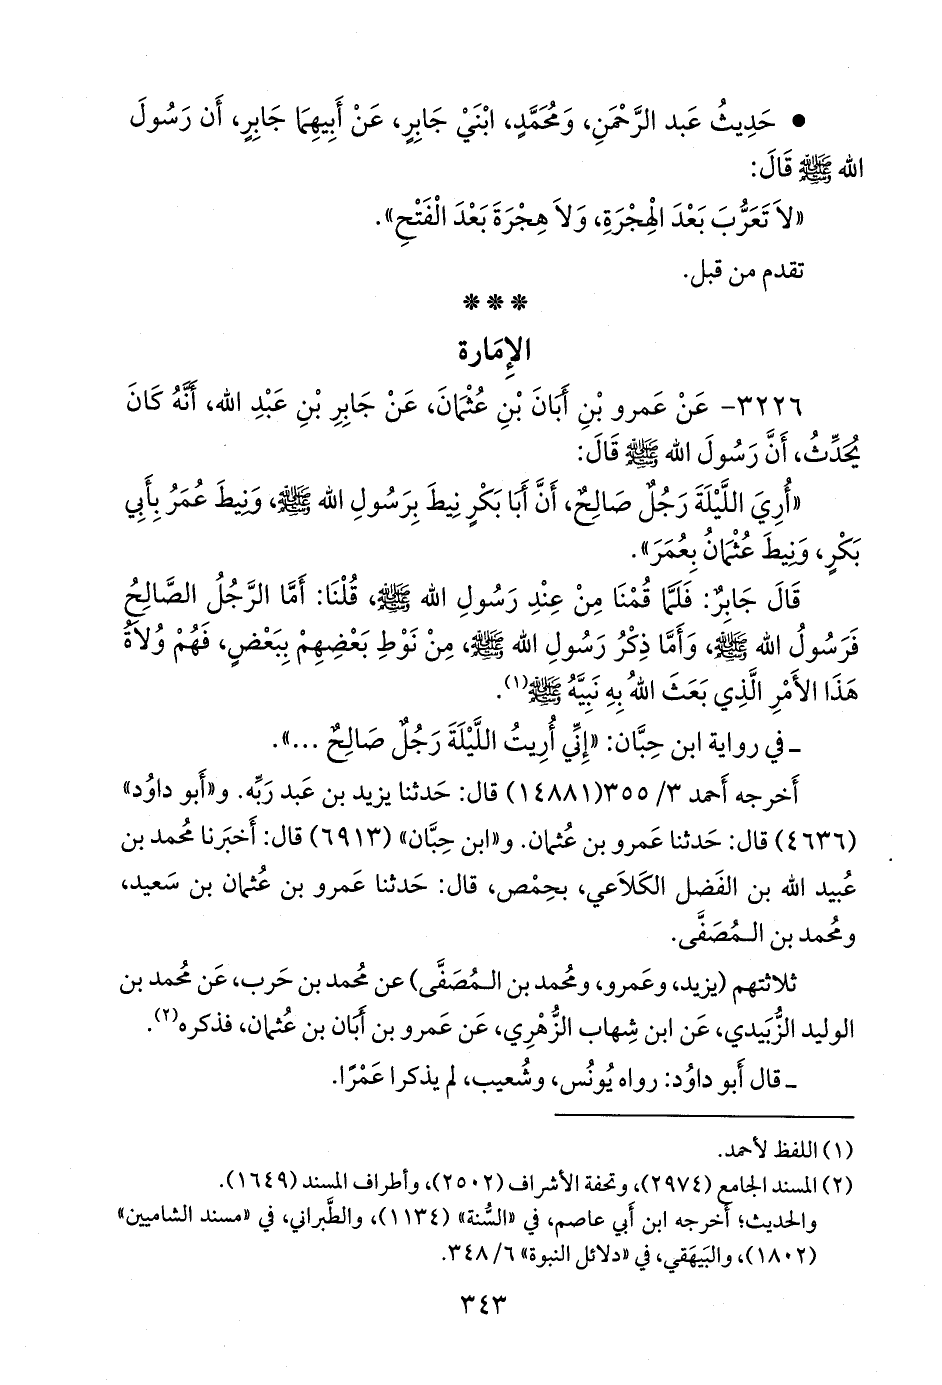 ● حَدِيثُ عَبد الرَّحْمَنِ، وَمُحَمَّدٍ، ابْنَيْ جَابِرٍ، عَنْ أَبِيهِمَا جَابِرٍ، أَن رَسُولَ
الله ﷺ قَالَ:
«لاَ تَعَرُّبَ بَعْدَ الْهِجْرَةِ، وَلاَ هِجْرَةَ بَعْدَ الْفَتْحِ».
تقدم من قبل.
***
الإِمَارة
٣٢٢٦- عَنْ عَمرو بْنِ أَبَانَ بْنِ عُثْمَانَ، عَنْ جَابِرِ بْنِ عَبْدِ الله، أَنَّهُ كَانَ
يُحَدِّثُ، أَنَّ رَسُولَ الله ﷺ قَالَ:
«أُرِيَ اللَّيْلَةَ رَجُلٌ صَالِحٌ، أَنَّ أَبَا بَكْرٍ نِيطَ بِرَسُولِ الله ﷺ، وَنِيطَ عُمَرُ بِأَبِي
بَكْرٍ، وَنِيطَ عُثْمَانُ بِعُمَرَ».
قَالَ جَابِرٌ: فَلَمَّا قُمْنَا مِنْ عِنْدِ رَسُولِ الله ﷺ، قُلْنَا: أَمَّا الرَّجُلُ الصَّالِحُ
فَرَسُولُ الله ﷺ، وَأَمَّا ذِكْرُ رَسُولِ الله ﷺ، مِنْ نَوْطِ بَعْضِهِمْ بِبَعْضٍ، فَهُمْ وُلاَةُ
هَذَا الأَمْرِ الَّذِي بَعَثَ اللهُ بِهِ نَبِيَّهُ ﷺ(١).
ـ في رواية ابن حِبَّان: «إِنِّي أُرِيتُ اللَّيْلَةَ رَجُلٌ صَالِحٌ ...».
أَخرجه أَحمد ٣/ ٣٥٥(١٤٨٨١) قال: حَدثنا يزيد بن عَبد رَبِّه. و«أَبو داوُد»
(٤٦٣٦) قال: حَدثنا عَمرو بن عُثمان. و«ابن حِبَّان» (٦٩١٣) قال: أَخبَرنا مُحمد بن
عُبيد الله بن الفَضل الكَلاَعي، بحِمْص، قال: حَدثنا عَمرو بن عُثمان بن سَعيد،
ومُحمد بن الـمُصَفَّى.
ثلاثتهم (يزيد، وعَمرو، ومُحمد بن الـمُصَفَّى) عن مُحمد بن حَرب، عَن مُحمد بن
الوليد الزُّبَيدي، عَن ابن شِهاب الزُّهْري، عَن عَمرو بن أَبَان بن عُثمان، فذكره(٢).
ـ قال أَبو داوُد: رواه يُونُس، وشُعيب، لم يذكرا عَمْرًا.
(١) اللفظ لأحمد.
(٢) المسند الجامع (٢٩٧٤)، وتحفة الأشراف (٢٥٠٢)، وأطراف المسند (١٦٤٩).
والحديث؛ أخرجه ابن أَبي عاصم، في «السُّنة» (١١٣٤)، والطَّبراني، في «مسند الشاميين»
(١٨٠٢)، والبَيهَقي، في «دلائل النبوة» ٦/ ٣٤٨.
٣٤٣